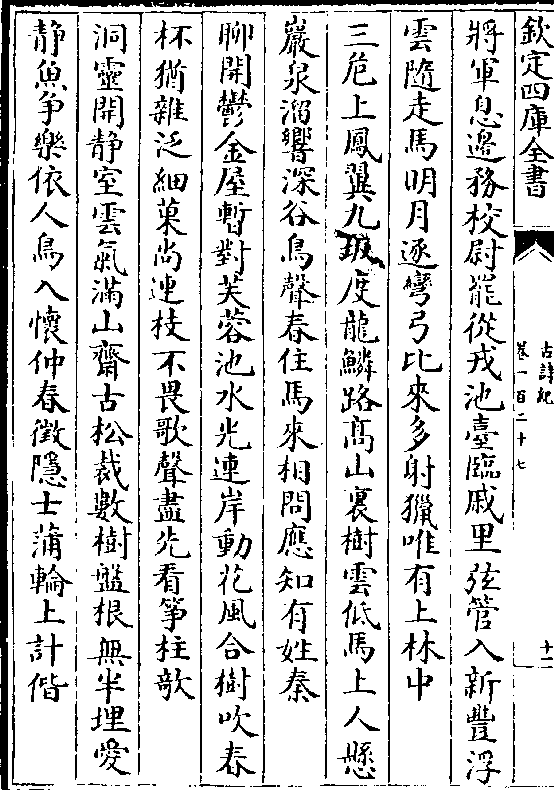 欽定四庫全書
古詩紀
卷一百二十七
十二
將軍息邊務校尉罷從戎池臺臨戚里弦管入新豐浮
雲隨走馬明月逐彎弓比來多射獵唯有上林中
三危上鳳翼九坂度龍鱗路髙山裏樹雲低馬上人懸
巖泉溜響深谷鳥聲春住馬來相問應知有姓秦
聊開鬱金屋暫對芙蓉池水光連岸動花風合樹吹春
杯猶雜泛細菓尚連枝不畏歌聲盡先看箏柱欹
洞靈開静室雲氣滿山齋古松裁數樹盤根無半埋愛
静魚争樂依人鳥入懷仲春徵隱士蒲輪上計偕